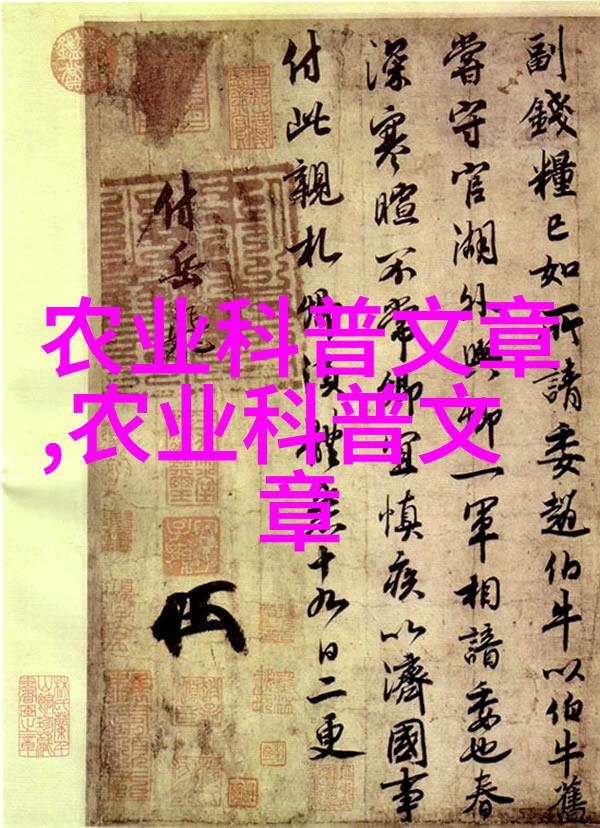 农业科普文章
,农业科普文
章
副錢糧已如所請委趙伯牛以伯牛舊
嘗守官湖外與卿一軍相諳委也春
深寒暄不常卿宜慎疾以濟國事
付此親札卿須體悉十九日二更
付岳飛